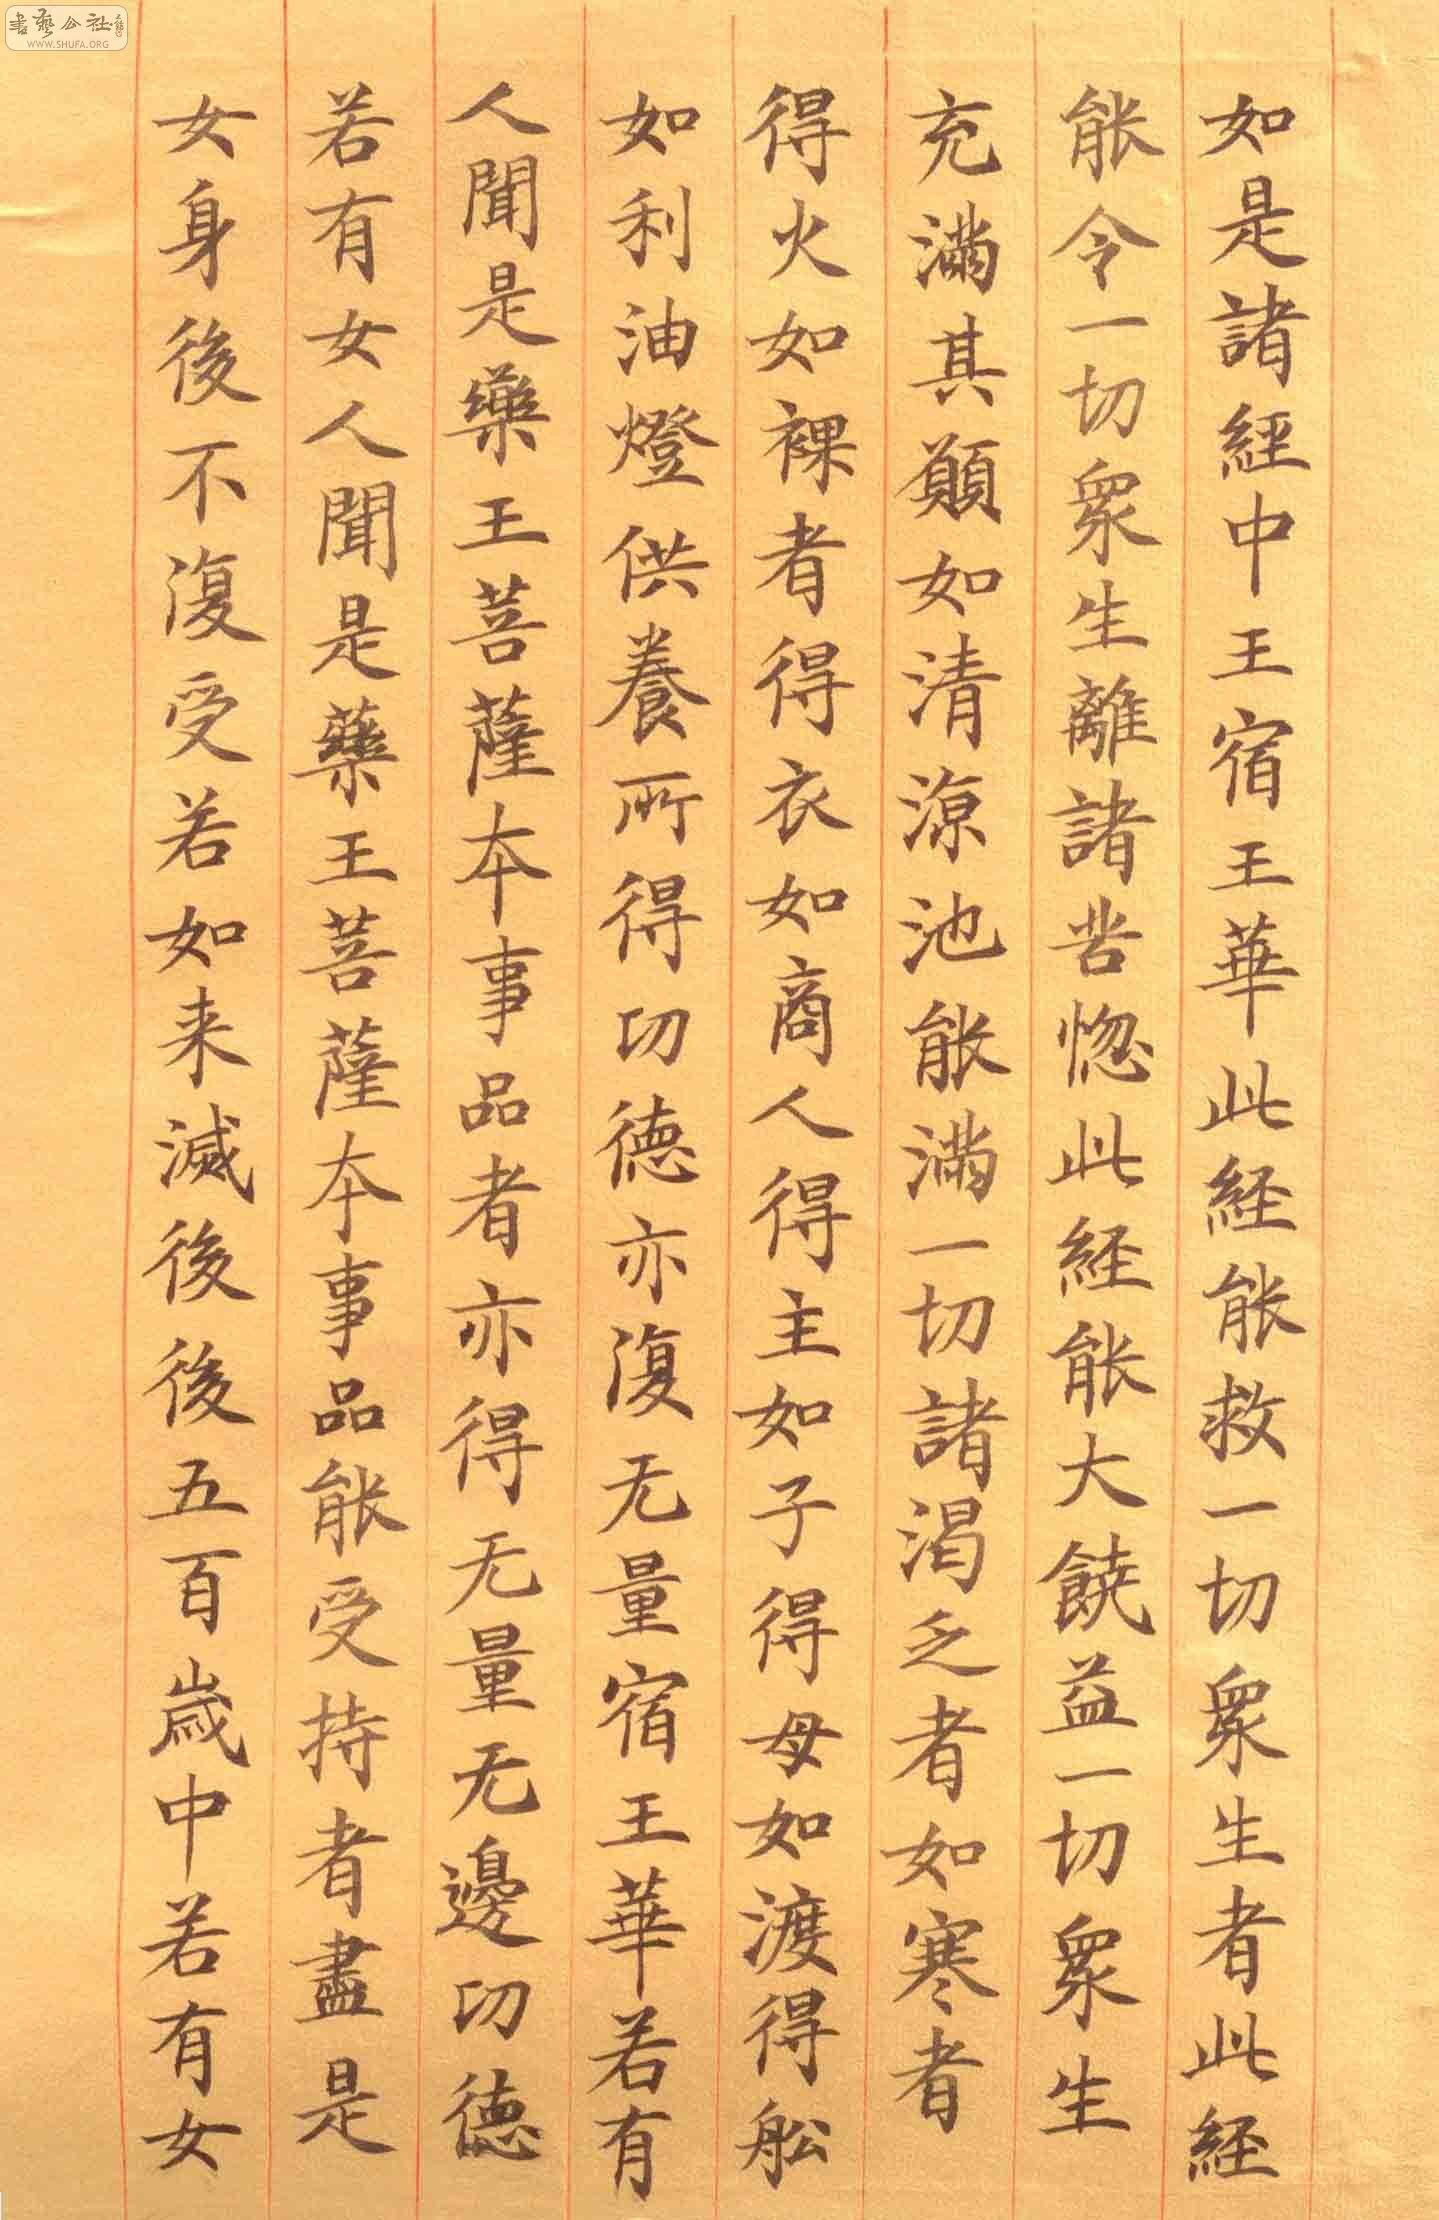 書藝公社
WWW.SHUFA.ORG
如是諸經中王宿王華此経能救一切衆生者此経
能令一切衆生離諸苦惚此経能大饒益一切衆生
充満其願如清涼池能満一切諸渇乏者如寒者
得火如裸者得衣如商人得主如子得母如渡得舩
如利油燈供養所得功德亦復无量宿王華若有
人聞是藥王菩薩本事品者亦得无量无邊功德
若有女人聞是藥王菩薩本事品能受持者盡是
女身後不復受若如来滅後後五百歳中若有女